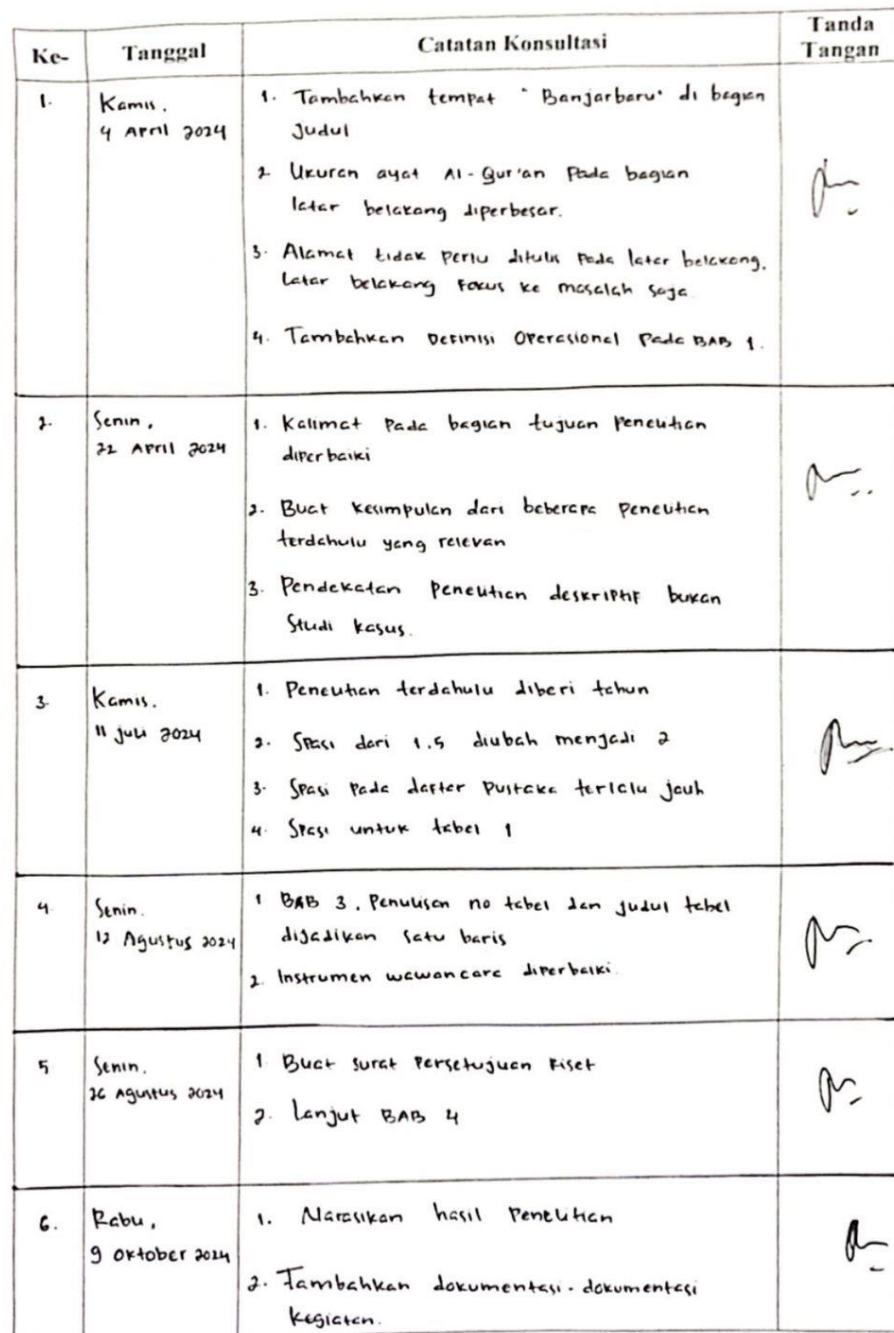 Ke- Tanggal Catatan Konsultasi Tanda Tangan
1. Kamis, 4 April 2024
1. Tambahkan tempat "Banjarbaru" di bagian
judul
2 Ukuran ayat Al-Qur'an pada bagian
latar belakang diperbesar.
3. Alamat tidak perlu ditulis pada latar belakang,
latar belakang fokus ke masalah saja
4. Tambahkan Definisi Operasional pada BAB 1.
2. Senin, 22 April 2024
1. Kalimat pada bagian tujuan penelitian
diperbaiki
2. Buat kesimpulan dari beberapa penelitian
terdahulu yang relevan
3. Pendekatan penelitian deskriptif bukan
Studi kasus.
3. Kamis. 11 juli 2024
1. Penelitian terdahulu diberi tahun
2. Spasi dari 1.5 diubah menjadi 2
3. Spasi pada daftar pustaka terlalu jauh
4. Spasi untuk tabel 1
4. Senin. 12 Agustus 2024
1 BAB 3. Penulisan no tabel dan judul tabel
dijadikan satu baris
2. Instrumen wawancara diperbaiki.
5 Senin. 26 Agustus 2024
1. Buat surat persetujuan riset
2. Lanjut BAB 4
6. Rabu, 9 Oktober 2024
1. Narasikan hasil penelitian
2. Tambahkan dokumentasi-dokumentasi
kegiatan.